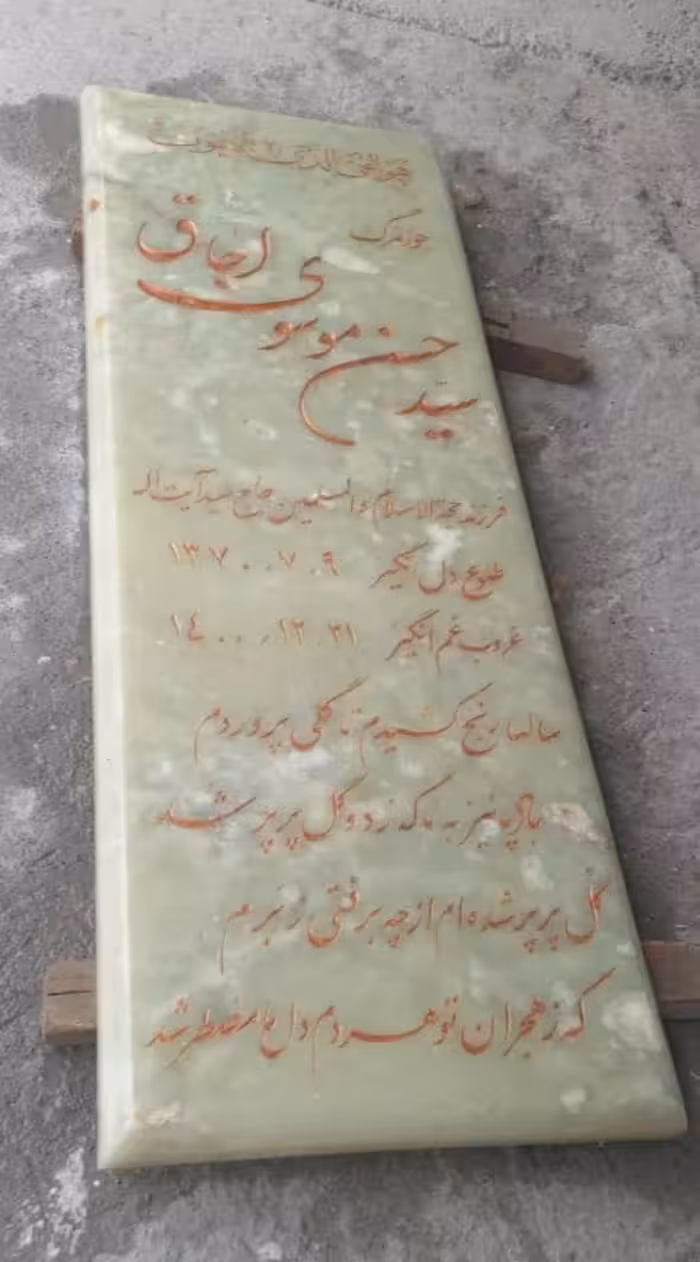 هوالحی الذی لایموت
جوانمرگ
سید حسن موسوی اجاق
فرزند حجة الاسلام والمسلمین حاج سید آیت اله
طلوع دل‌گیر ۱۳۷۰.۷.۹
غروب غم انگیز ۱۴۰۰.۱۲.۲۱
سالها رنج کشیدم تا گلی پروردم
باد پاییز به ما که زد و گل پرپر شد
گل پرپر شده ام از چه برفتی ز برم
که ز هجران تو هر دم دل ما مضطر شد